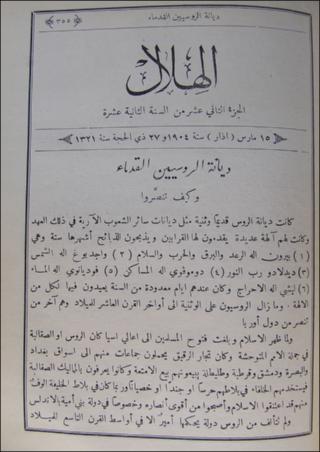 ديانة الروسيين القدماء
٣٥٥
الهلال
الجزء الثاني عشر من السنة الثانية عشرة
١٥ مارس ( اذار ) سنة ١٩٠٤ و ٢٧ ذي الحجة سنة ١٣٢١
ديانة الروسيين القدماء
وكيف تنصّروا
كانت ديانة الروس قديمًا وثنية مثل ديانات سائر الشعوب الآرية في ذلك العهد
وكانت لهم آلهة عديدة يقدمون لها القرابين ويذبحون الذبائح أشهرها ستة وهي
(١) بيرون اله الرعد والبرق والحرب والسلام (٢) واجدبوغ اله الشمس
(٣) ديدلادو رب النور (٤) دوموفوي اله المساكن (٥) فوديانوي اله الماء
(٦) ليشي اله الاحراج وكان عندهم ايام معدودة من السنة يعيدون فيها لكل من
الآلهة . وما زال الروسيون على الوثنية الى أواخر القرن العاشر للميلاد وهم آخر من
تنصر من دول أوربا
ولما ظهر الاسلام وبلغت فتوح المسلمين الى اعالي اسيا كان الروس او الصقالبة
في جملة الامم المتوحشة وكان تجار الرقيق يحملون جماعات منهم الى اسواق بغداد
والبصرة ودمشق وقرطبة وطليطلة يبيعونهم بيع الامتعة وكانوا يعرفون بالماليك الصقالبة
فيستخدمهم الخلفاء في بلاطهم حرسًا او جندًا او خصيانًا وربما كان في بلاط الخليفة الوف
منهم قد اعتنقوا الاسلام وأصبحوا من أقوى أنصاره وخصوصًا في دولة بني أمية بالاندلس
ولم تتألف من الروس دولة يحكمها أمير الا في أواسط القرن التاسع للميلاد